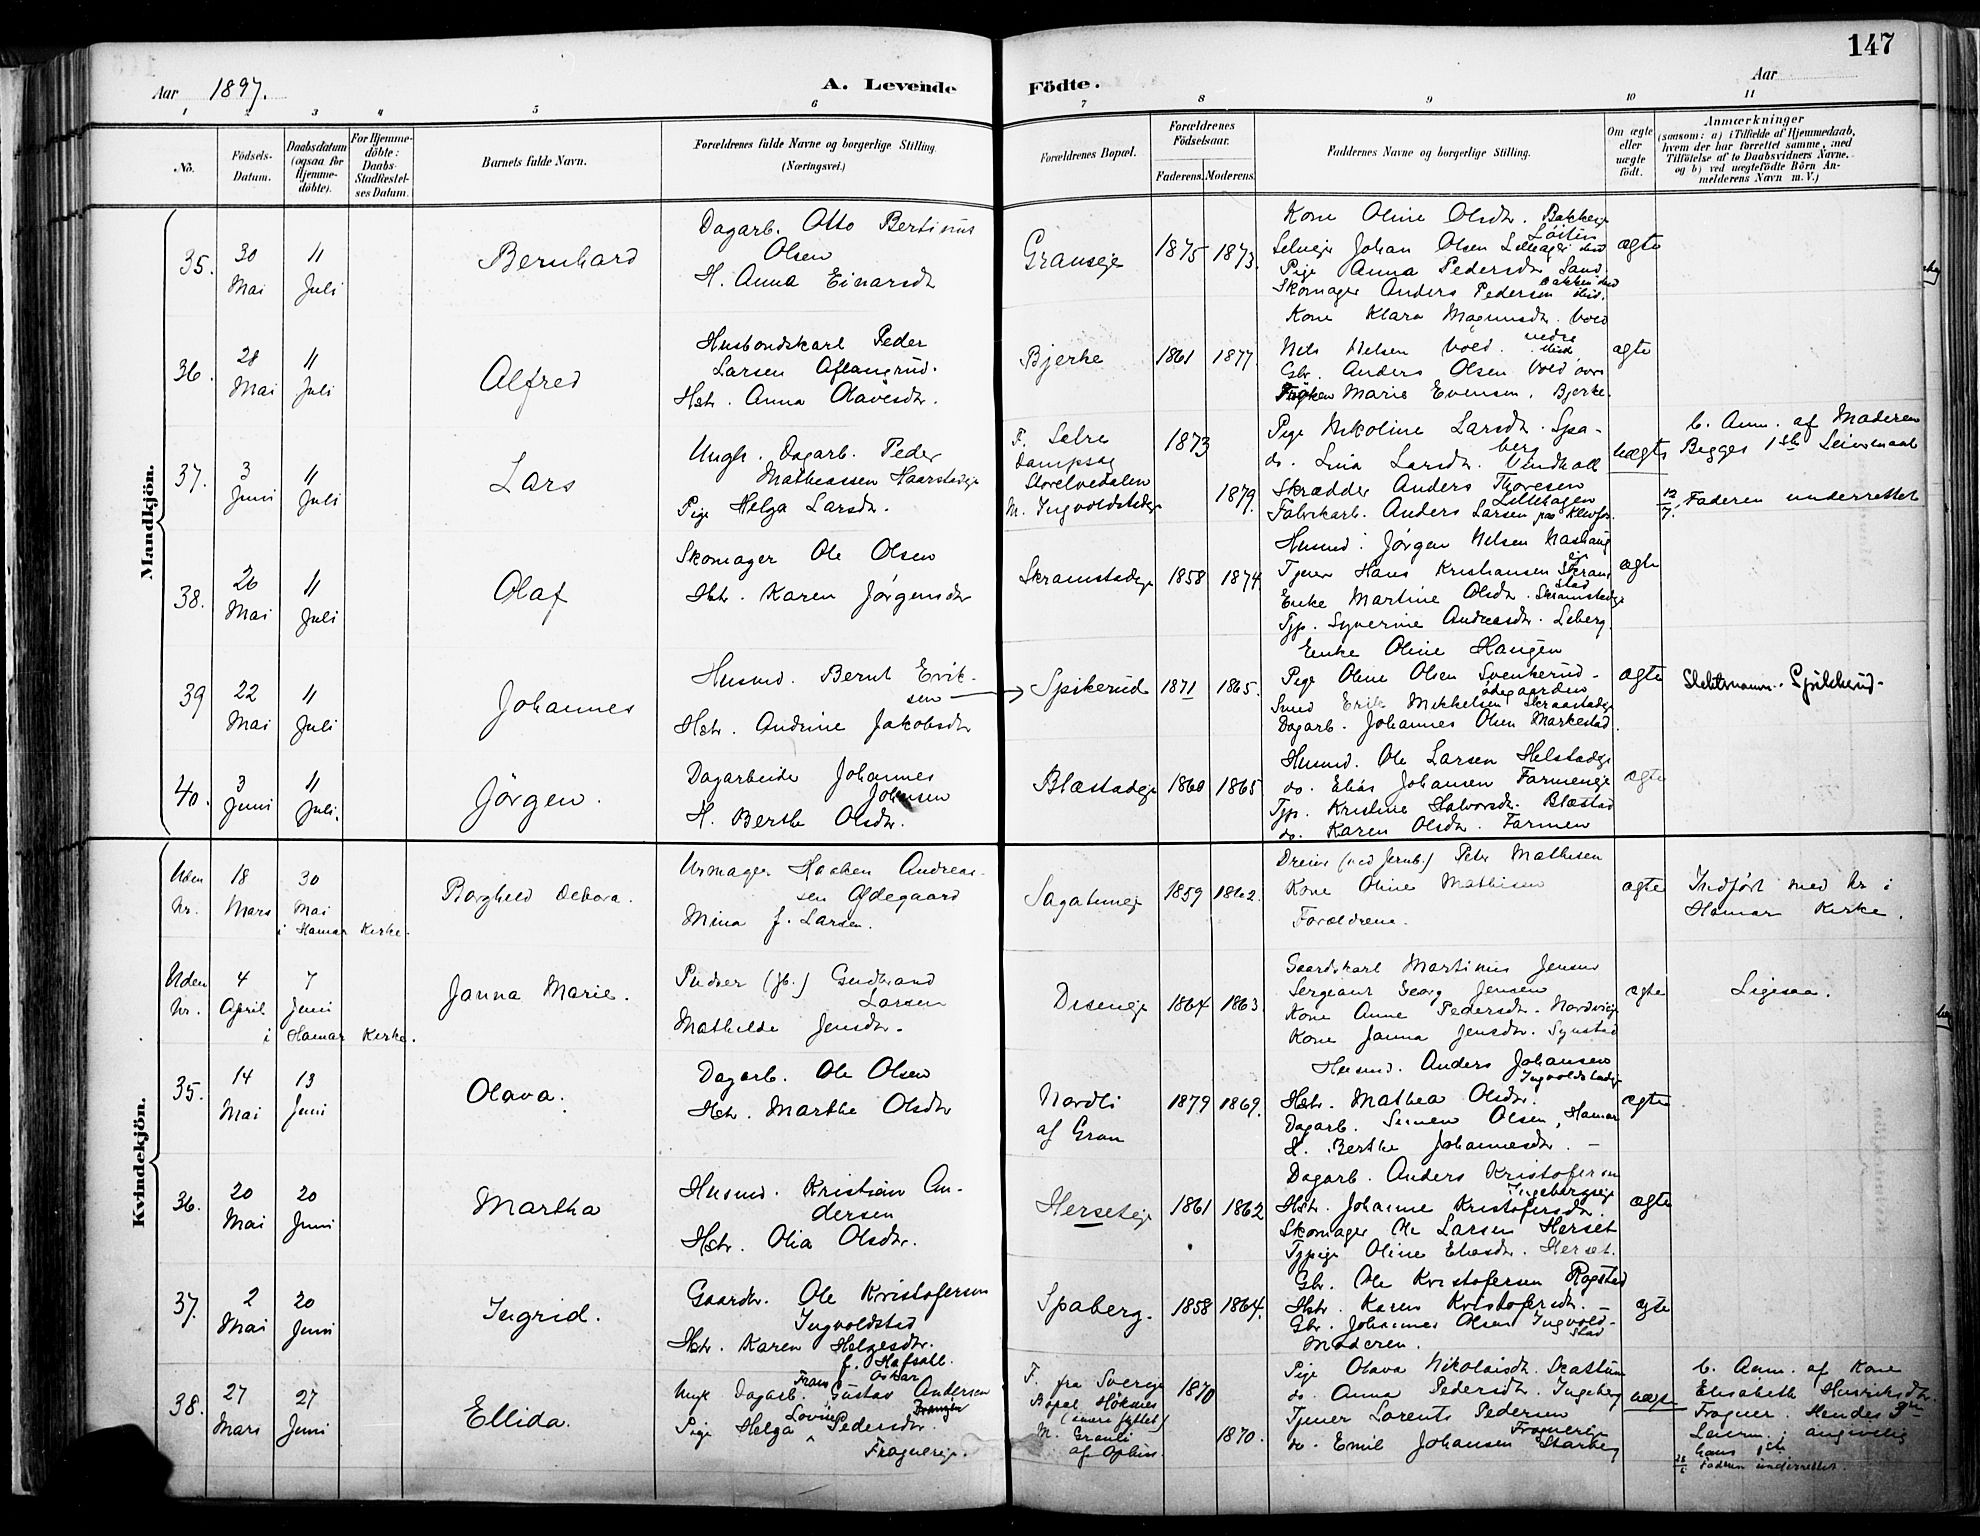 147
Aar 1897.
A. Levende Födte.
Aar
1 2 3 4 5 6 7 8 9 10 11
No.
Födsels-Datum.
Daabsdatum (ogsaa for Hjemme-döbte).
For Hjemme-döbte: Daabs-Stadfæstel-ses Datum.
Barnets fulde Navn.
Forældrenes fulde Navne og borgerlige Stilling (Næringsvei.)
Forældrenes Bopæl.
Forældrenes Födselsaar.
Faderens. Moderens.
Faddernes Navne og borgerlige Stilling.
Om ægte eller uægte födt.
Anmærkninger
(saasom: a) i Tilfælde af Hjemmedaab, hvem der har forrettet samme, med Tilföielse af to Daabsvidners Navne. og b) ved uægtefödte Börn Anmelderens Navn m. V.)
Mandkjön.
35.
30 Mai
11 Juli
Bernhard
Dagarb. Otto Bertinus
Olsen
H. Anna Einarsdtr
Granseje
1875 1873.
Kone Oline Olsdtr. Bakkeeje
Løiten
Selveje Johan Olsen
Pige Anna Pedersdtr Sand
Skomager Anders Pedersen
ægte
36.
28 Mai
11 Juli
Alfred
Husbondskarl Peder
Larsen Aflangrud.
Hstr. Anna Olavesdtr.
Bjerke
1861 1877
Kone Klara Magnusdtr. Vold
nedre
Nils Nilsen Vold.
Gbr. Anders Olsen Vold øvre
Frøken Marie Evensen. Bjerke.
ægte
37.
3 Juni
11 Juli
Lars
Ungk. Dagarb. Peder
Matheassen Haarstadeje
Pige Helga Larsdtr.
F. Selre
Dampsag
Storelvedalen
M. Ingvoldstadeje
1873
1879.
Pige Nikoline Larsdtr. Spa-
berg
do. Lina Larsdtr. Vindhall
Skrædder Anders Thoresen
Lillehagen
Fabrikarb. Anders Larsen paa Klevfos
uægte
b. Anm. af Moderen
Begges 1ste Leiermaal
12/7. Faderen underrettet
38.
20 Mai
11 Juli
Olaf
Skomager Ole Olsen
Hstr. Karen Jørgensdtr
Skramstadeje
1858 1874
Husmd. Jørgen Nilsen
Tjener Hans Kristiansen Skram
stad
Enke Martine Olsdtr. Skramstadeje
Tjp. Syverine Andreasdtr. Liberg
ægte
39
22 Mai
11 Juli
Johannes
Husmd. Bernt Erik-
sen
Hstr. Andrine Jakobsdtr
Spikerud
1871 1865.
Enke Oline Haugen
Pige Oline Olsen Svenkerud-
ødegaarden
Smed Erik Mikkelsen Skraastadeje
Dagarb. Johannes Olsen Markestad.
ægte
Slektsnavn: Spikkerud.
40.
3 Juni
11 Juli.
Jörgen.
Dagarbeider Johannes
Johnsen
H. Berthe Olsdtr.
Blæstadeje
1860 1865
Husmd. Ole Larsen Helstadeje
do. Elias Johansen Farmeneje
Tjp. Kristine Halvorsdtr. Blæstad
do. Karen Olsdtr. Farmen
ægte
Kvindekjön.
Uden Nr.
18 Mars
30 Mai
i Hamar Kirke.
Borghild Debora.
Urmager Haaken Andreas-
sen Ødegaard
Mina f. Larsen.
Sagatuneje
1859 1862.
Dreier (ved Jernb.) Peter Mathisen
Kone Oline Mathisen
Forældrene.
ægte
Indført med Nr i
Hamar Kirke.
Uden Nr.
4 April
7 Juni
i Hamar Kirke.
Janna Marie.
Pudser (jb.) Gudbrand
Larsen
Mathilde Jensdtr.
Diseneje
1864 1863.
Gaardskarl Martinus Jensen
Sergeant Georg Jensen
Kone Anne Pedersdtr. Nordvigeje
Kone Janna Jensdtr. Synstad
ægte
Ligesaa.
35.
14 Mai
13 Juni
Olava.
Dagarb. Ole Olsen
Hstr. Marthe Olsdtr
Nordli
af Gran
1879 1869.
Husmd. Anders Johansen
Ingvoldstadeje
Hstr. Mathea Olsdtr.
Dagarb. Simen Olsen, Hamar
H. Berthe Johannesdtr. —
ægte
36.
20 Mai
20 Juni
Martha
Husmd. Kristian An-
dersen
Hstr. Olia Olsdtr.
Herseteje
1861 1862
Dagarb. Anders Kristofersen
Ingebergeje
Hstr. Johanne Kristofersdtr
Skomager Ole Larsen Herset
Tjpige Oline Eliasdtr. Herset.
ægte
37.
2 Mai
20 Juni
Ingrid.
Gaardbr. Ole Kristofersen
Ingvoldstad
Hstr. Karen Helgesdtr.
f. Hafsall.
Spaberg.
1858 1864.
Gbr. Ole Kristofersen Rogstad
Hstr. Karen Kristofersdtr. —
Gbr. Johannes Olsen Ingvold-
stad
Moderen.
ægte
38.
27 Mars
27 Juni
Ellida.
Frans Oskar
Ungk Dagarb. Gustav Andersen
Lovise
Pige Helga Pedersdtr.
Fragnereje.
F. fra Sverige
Bopæl Höknes
(senere flyttet)
M. Granli
af Ophus
1870
1870.
Pige Olava Nikolaisdtr. Skattum
do. Anna Pedersdtr. Ingeberg
Tjener Lorents Pedersen
Fragnereje
do. Emil Johansen Starberg
uægte
b. Anm. af Kone
Elisabeth Henriksdtr.
Fragner. Hendes 3die
Leierm.; angivelig
hans 1ste
28/6 Faderen underrettet.